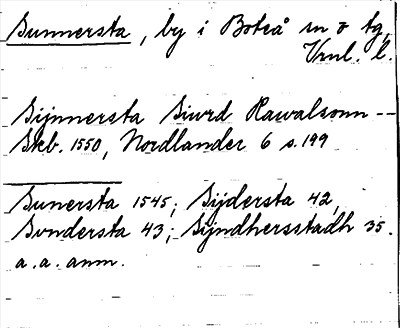 Sunnersta, by i Boteå sn o tg,
Vrnl. l.
Sijnnersta Siurd Rawalsonn --
Skb. 1550, Nordlander 6 s. 199
Sunersta 1545; Sijdersta 42,
Svndersta 43; Syndhersstadh 35.
a. a. anm.